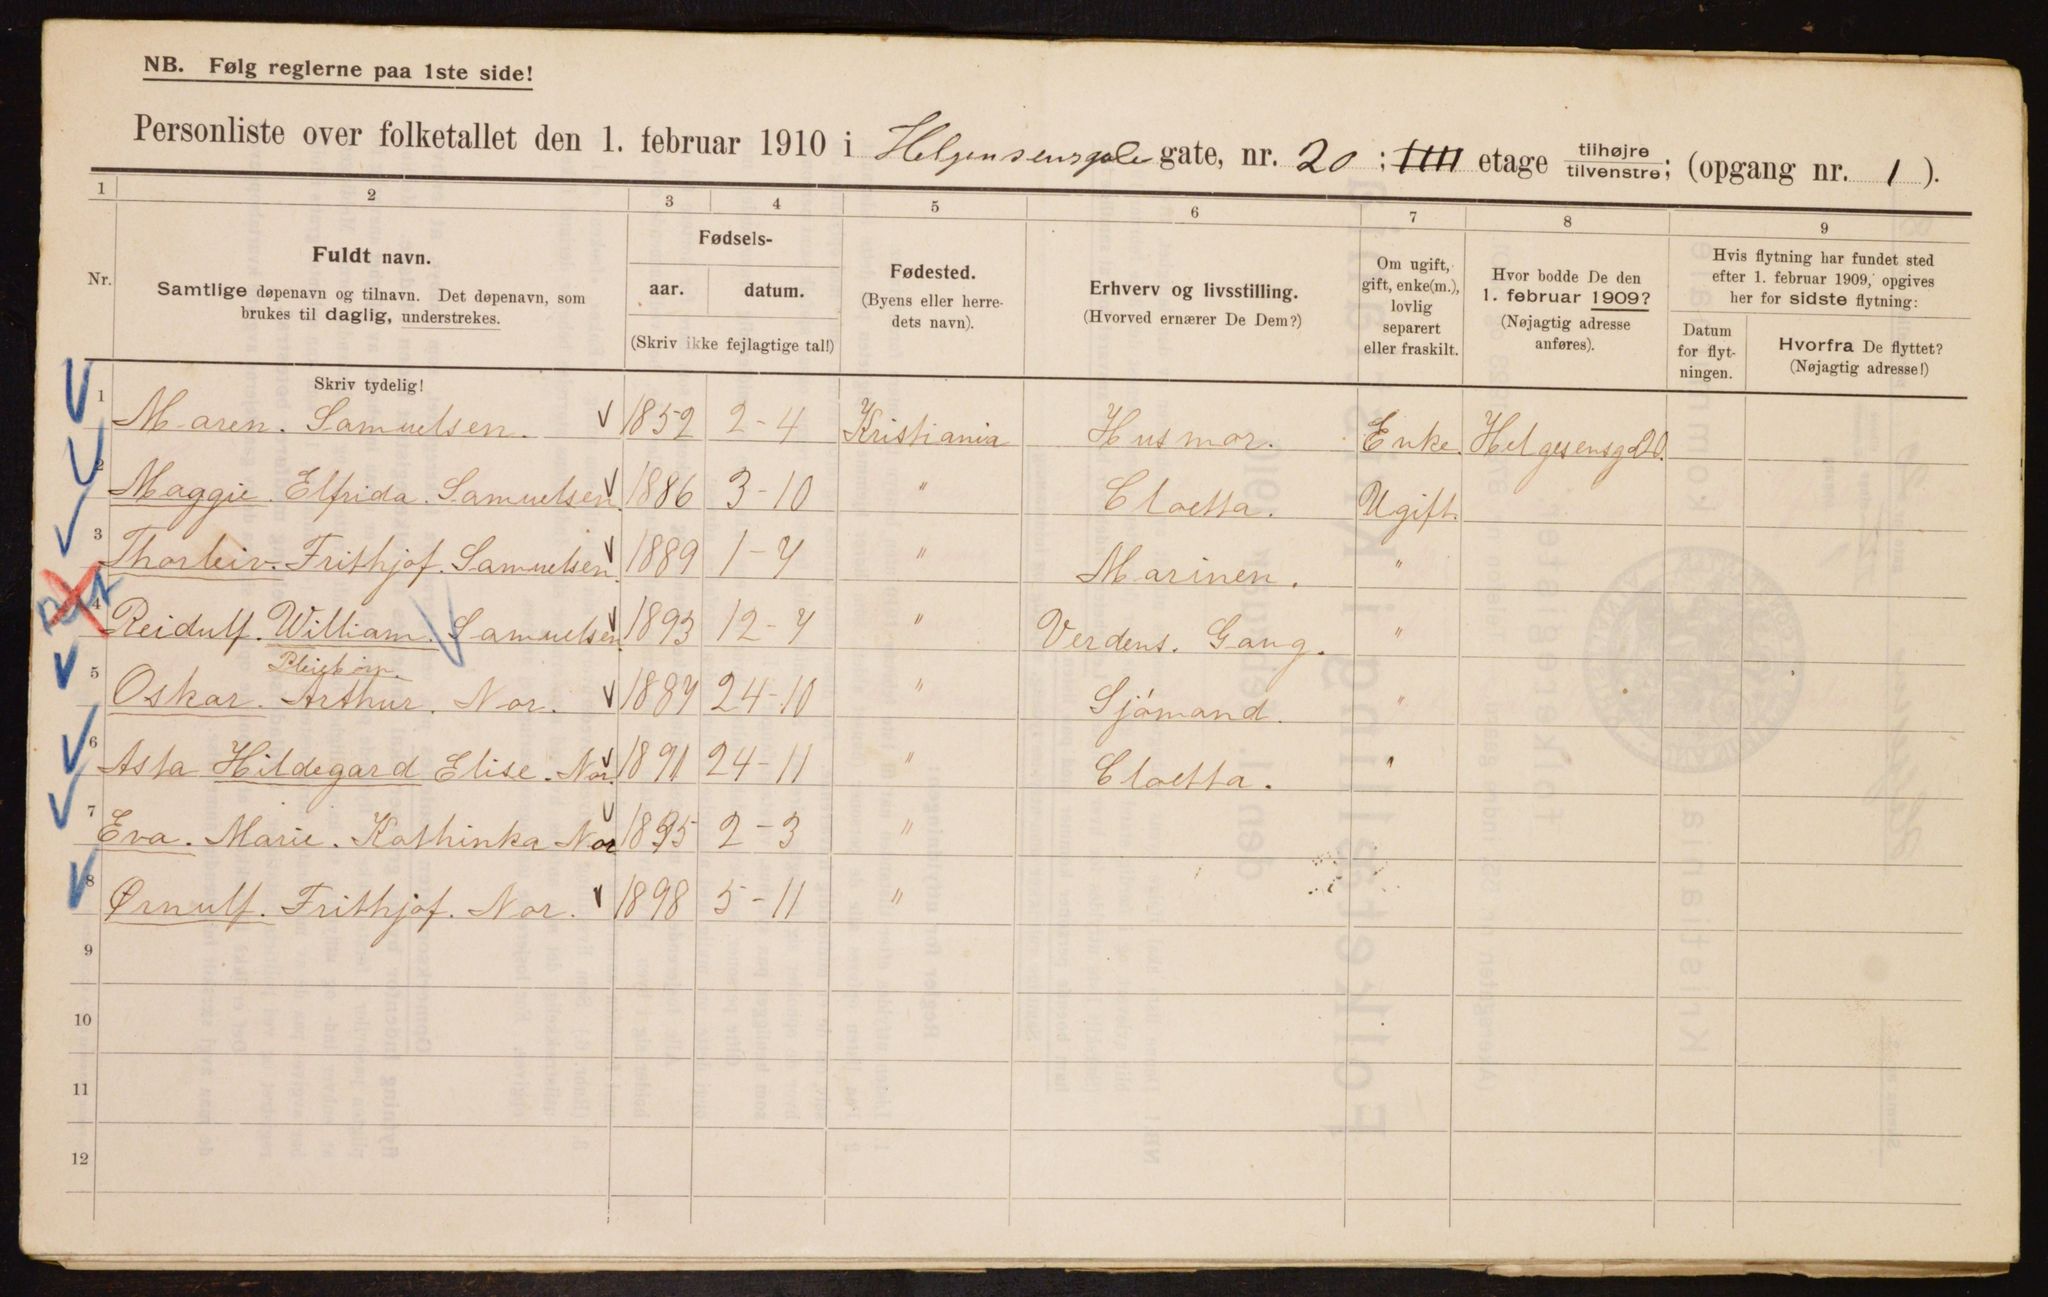 NB. Følg reglerne paa 1ste side!
Personliste over folketallet den 1. februar 1910 i Helgensensgale gate, nr. 20 ; IIII etage tilhøjre/tilvenstre; (opgang nr. 1 ).
1 2 3 4 5 6 7 8 9
Nr.
Fuldt navn.
Samtlige døpenavn og tilnavn. Det døpenavn, som
brukes til daglig, understrekes.
Fødsels-
aar. datum.
(Skriv ikke fejlagtige tal!)
Fødested.
(Byens eller herre-
dets navn).
Erhverv og livsstilling.
(Hvorved ernærer De Dem?)
Om ugift,
gift, enke(m.),
lovlig
separert
eller fraskilt.
Hvor bodde De den
1. februar 1909?
(Nøjagtig adresse
anføres).
Hvis flytning har fundet sted
efter 1. februar 1909, opgives
her for sidste flytning:
Datum
for flyt-
ningen.
Hvorfra De flyttet?
(Nøjagtig adresse!)
Skriv tydelig!
1 Maren. Samuelsen. 1852 2-4 Kristiania Husmor. Enke. Helgesensgd20.
2 Maggie. Elfrida. Samuelsen 1886 3-10 " Cloetta. Ugift.
3 Thorleiv. Frithjof. Samuelsen. 1889 1-7 " Marinen. "
4 Reidulf. William. Samuelsen. 1893 12-7 " Verdens. Gang. "
Pleiebørn.
5 Oskar. Arthur. Nor. 1887 24-10 " Sjómand. "
6 Asta Hildegard Elise. Nor. 1891 24-11 " Cloetta. "
7 Eva. Marie. Kathinka Nor 1895 2-3 "
8 Ørnulf. Frithjof. Nor. 1898 5-11 "
9
10
11
12